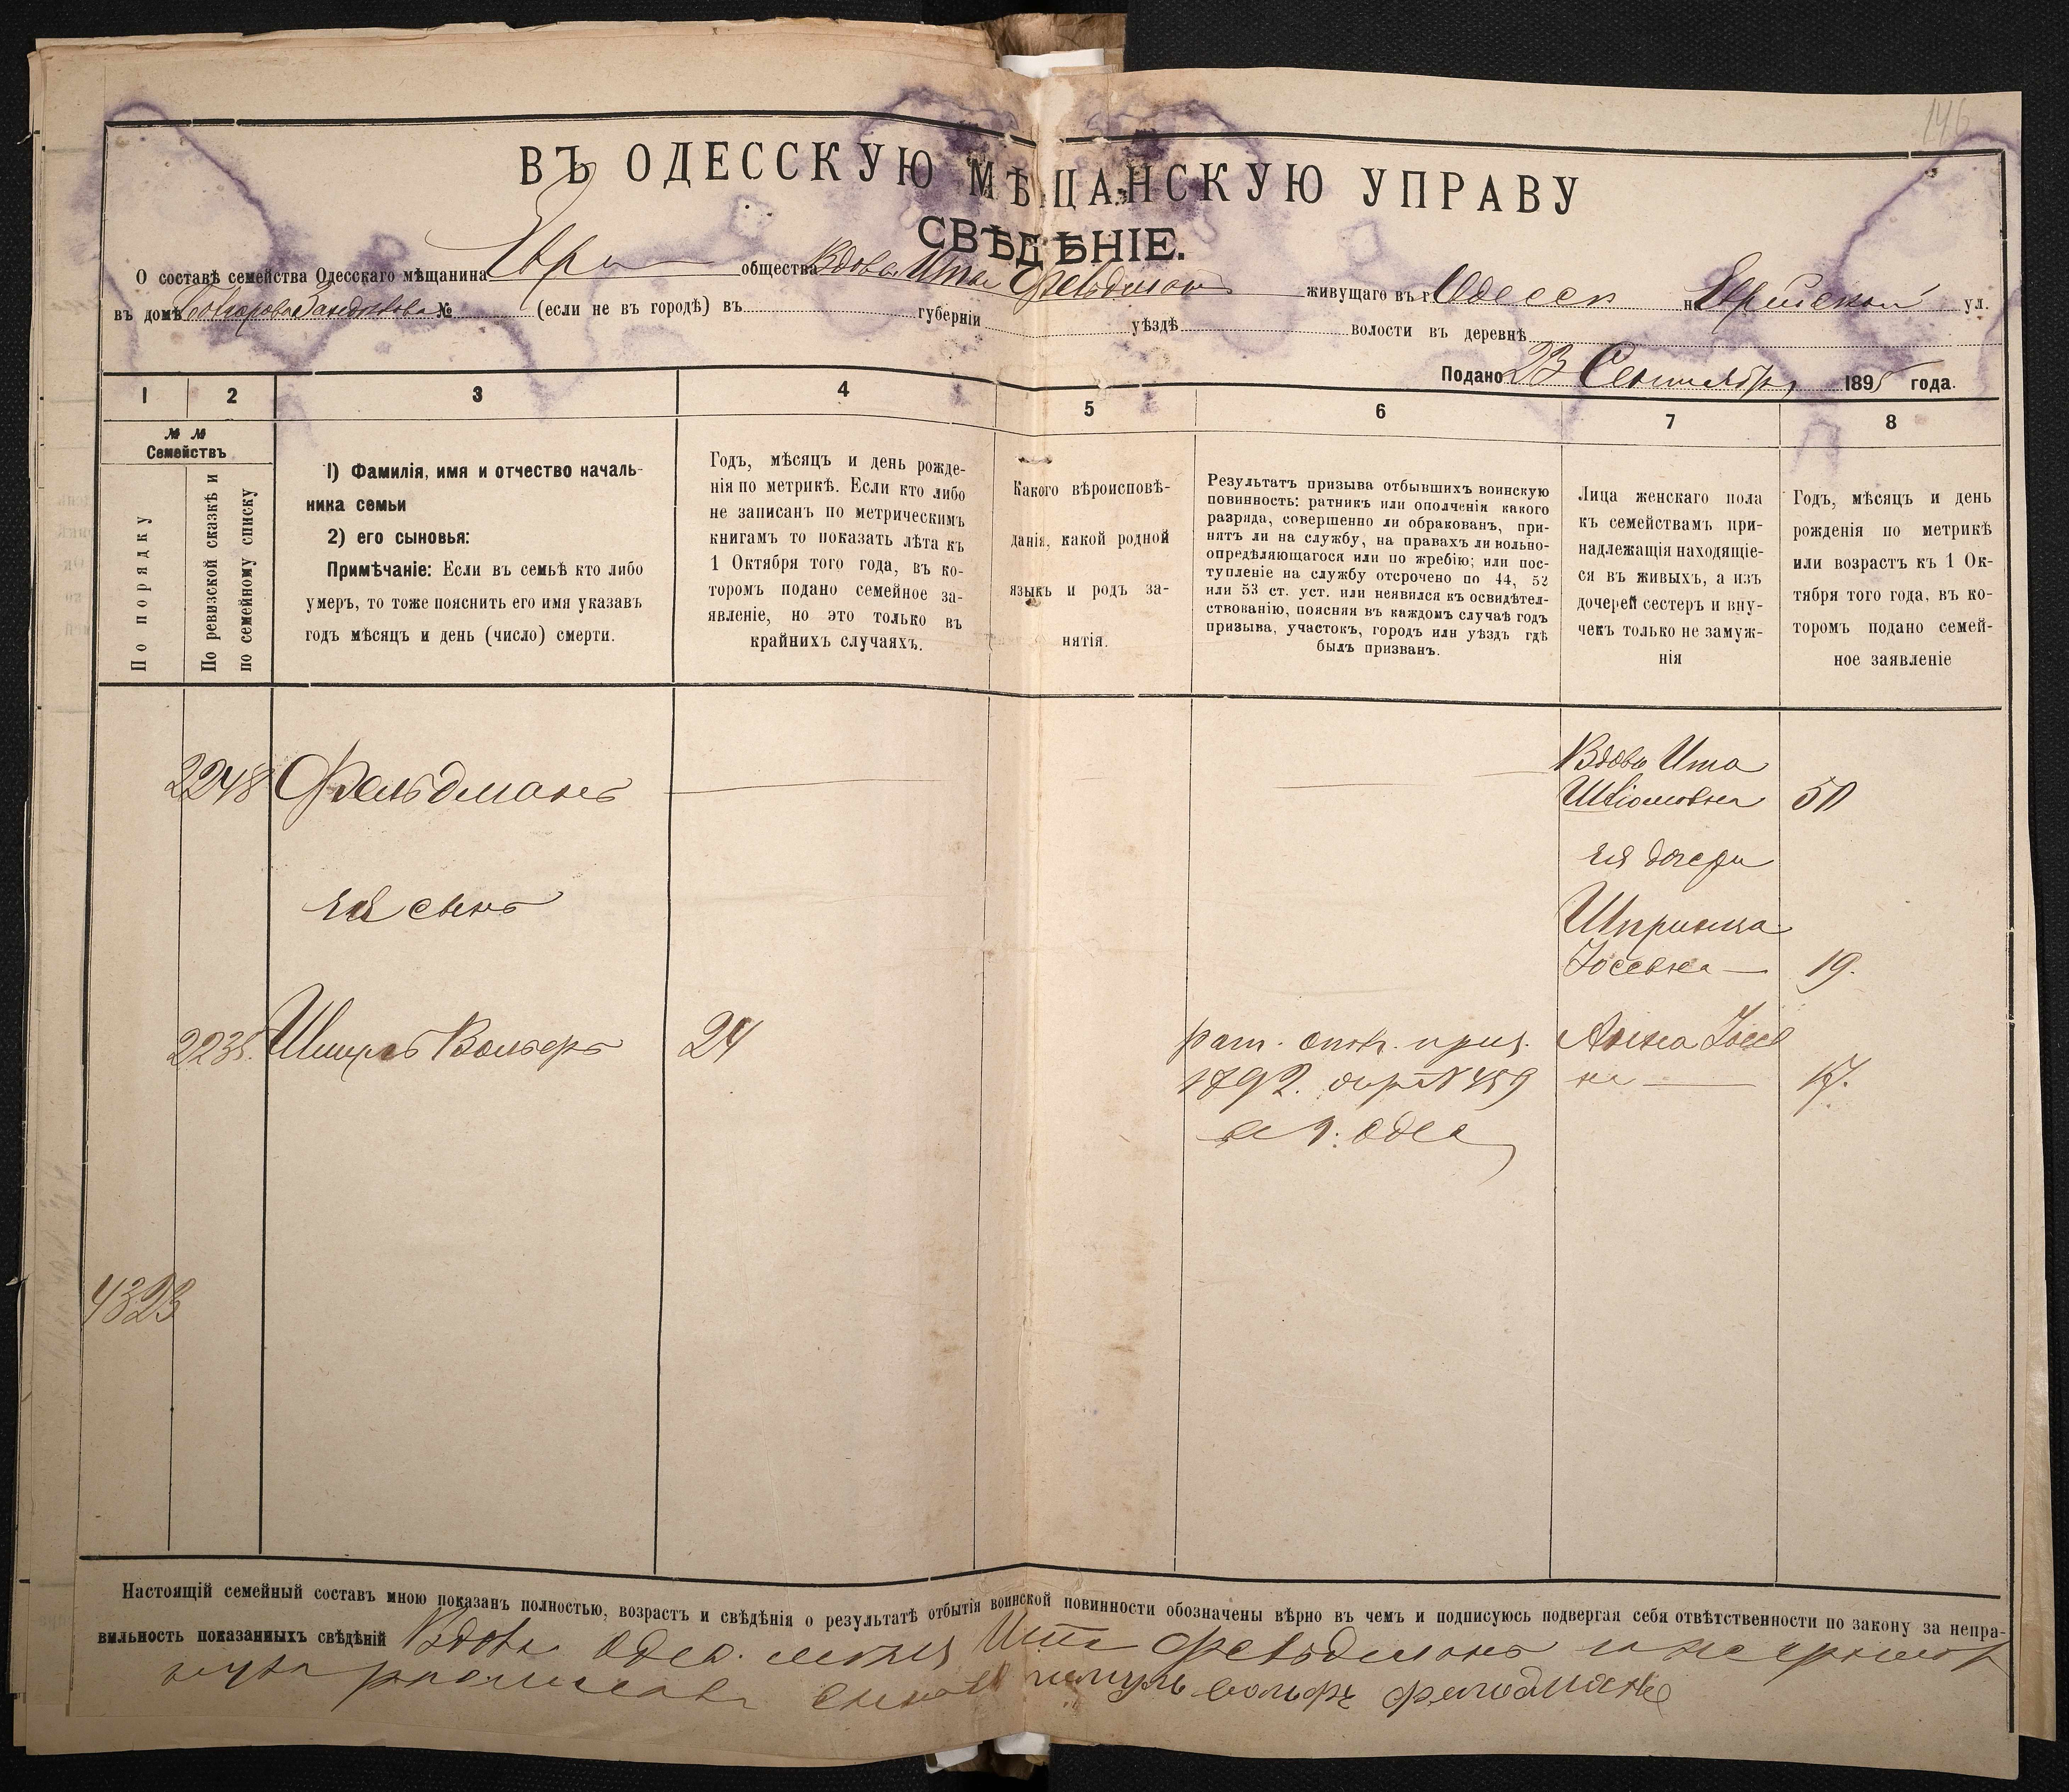 146
ВЪ ОДЕССКУЮ МѢЩАНСКУЮ УПРАВУ
СВѢДѢНІЕ.
О составѣ семейства Одесскаго мѣщанина Евр общества Вдова Ита Фельдманъ живущаго въ г. Одессѣ на Еврейской ул.
въ домѣ № (если не въ городѣ) въ губерніи уѣздѣ волости въ деревнѣ
Подано 23 Сентября 1895 года.
1 2 3 4 5 6 7 8
№ № Семействъ
По порядку
По ревизской сказкѣ и
по семейному списку
1) Фамилія, имя и отчество началь-
ника семьи
2) его сыновья:
Примѣчаніе: Если въ семьѣ кто либо
умеръ, то тоже пояснить его имя указавъ
годъ мѣсяцъ и день (число) смерти.
Годъ, мѣсяцъ и день рожде-
нія по метрикѣ. Если кто либо
не записанъ по метрическимъ
книгамъ то показать лѣта къ
1 Октября того года, въ ко-
торомъ подано семейное за-
явленіе, но это только въ
крайнихъ случаяхъ.
Какого вѣроисповѣ-
данія, какой родной
языкъ и родъ за-
нятія.
Результатъ призыва отбывшихъ воинскую
повинность: ратникъ или ополченія какого
разряда, совершенно ли обракованъ, при-
нятъ ли на службу, на правахъ ли вольно-
опредѣляющагося или по жребію; или пос-
тупленіе на службу отсрочено по 44, 52
или 53 ст. уст. или неявился къ освидѣтел-
ствованію, поясняя въ каждомъ случаѣ годъ
призыва, участокъ, городъ или уѣздъ гдѣ
былъ призванъ.
Лица женскаго пола
къ семействамъ при-
надлежащія находящіе-
ся въ живыхъ, а изъ
дочерей сестеръ и вну-
чекъ только не замуж-
нія
Годъ, мѣсяцъ и день
рожденія по метрикѣ
или возрастъ къ 1 Ок-
тября того года, въ ко-
торомъ подано семей-
ное заявленіе
Вдова Ита
2248 Фельдманъ Шліомовна 50
ея дочери
ея сынъ
Шпринца
Іосевна 19.
2235. Шмуль Вольфъ 24 рат. опол. приз. Анна Іосев
1892. № 459 на 17.
в г. Одес
4323
Настоящій семейный составъ мною показанъ полностью, возрастъ и свѣдѣнія о результатѣ отбытія воинской повинности обозначены вѣрно въ чемъ и подписуюсь подвергая себя отвѣтственности по закону за непра-
вильность показанныхъ свѣдѣній Вдова Одес. Ита Фельдманъ
шмуль вольфъ фельдманъ